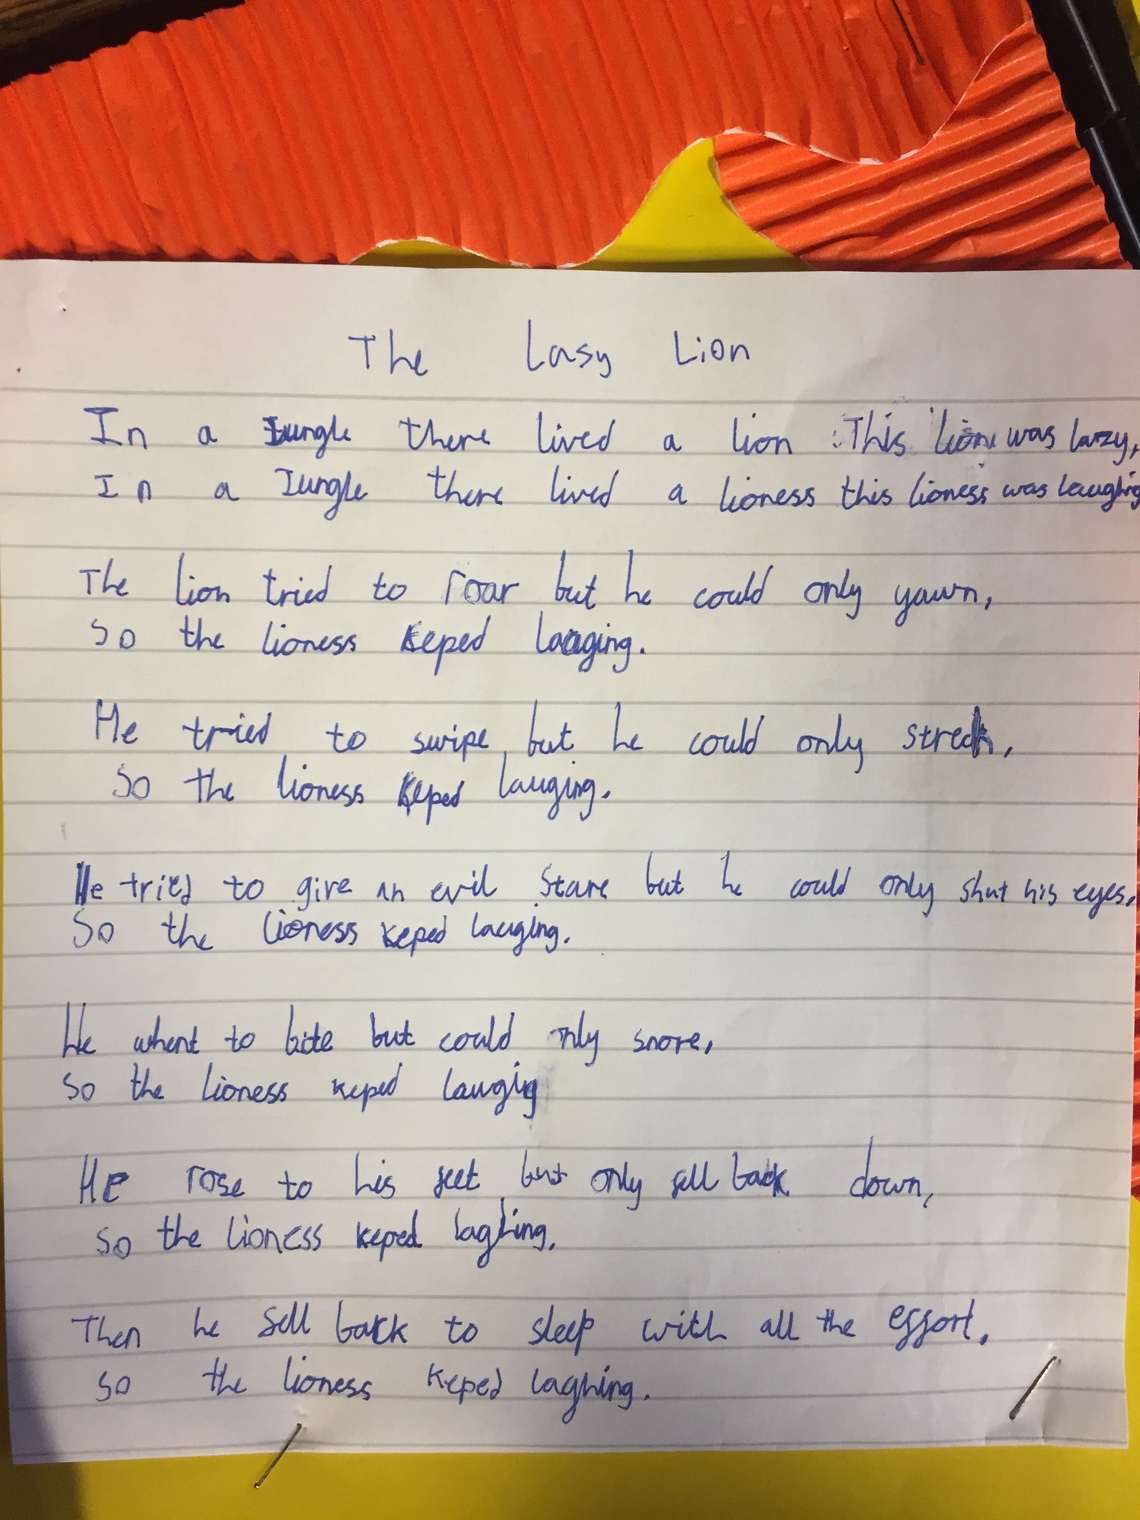 The Lasy Lion
In a Jungle there lived a lion. This lion was lazy,
In a Jungle there lived a lioness this lioness was laughing
The lion tried to roar but he could only yawn,
so the lioness keped lauging.
He tried to swipe but he could only strech,
So the lioness keped lauging.
He tried to give an evil stare but he could only shut his eyes,
So the lioness keped lauging.
He whent to bite but could only snore,
so the lioness keped laugig
He rose to his feet but only fell back down,
so the lioness keped laghing.
Then he fell back to sleep with all the effort.
so the lioness keped laghing.